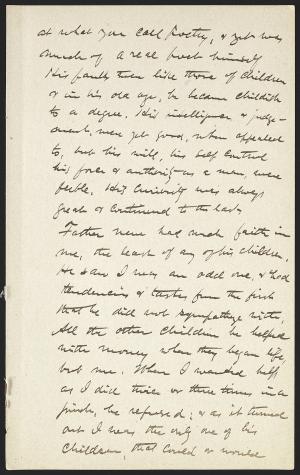 at what you call Poetry, & yet was
much of a real poet himself
His faults were like those of children
& in his old age, he became childish
to a degree. His intelligence & judge-
ment, were yet good, when appealed
to, but his will, his self control
his force & authority as a man, were
feeble. His curiosity was always
great & continued to the last.
Father never had much faith in
me, the least of any of his children.
He saw I was an odd one, & had
tendencies & tastes from the first
that he did not sympathize with.
All the other children he helped
with money when they began life,
but me. When I wanted help
as I did twice or three times in a
pinch, he refused; & as it turned
out I was the only one of his
children, that could or would